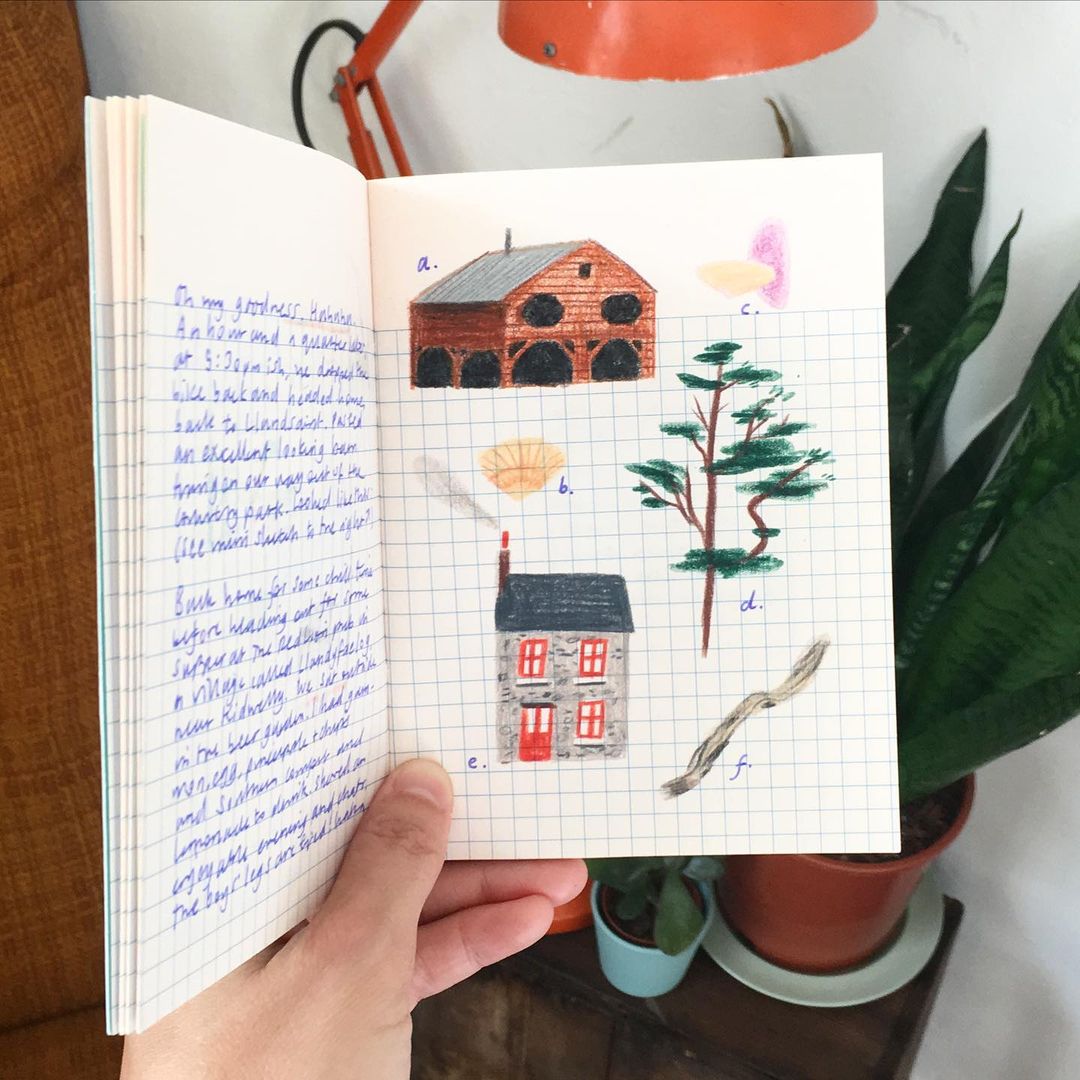 Oh my goodness. Hahaha.
An hour and a quarter later,
at 5:30pm ish, we dropped the
bike back and headed home,
back to Llansaint. Passed
an excellent looking barn
thing on our way out of the
country park. Looked like this
(see mini sketch to the right)
Back home for some chill time
before heading out for some
supper at The Red Lion pub in
a village called Llandyfaelog
near Kidwelly. We sat outside
in the beer garden. I had gam-
mon, egg, pineapple + chips
and Southern Comfort and
lemonade to drink. Shared an
enjoyable evening and chats,
the boys' legs are tired! haha
a.
b.
c.
d.
e.
f.